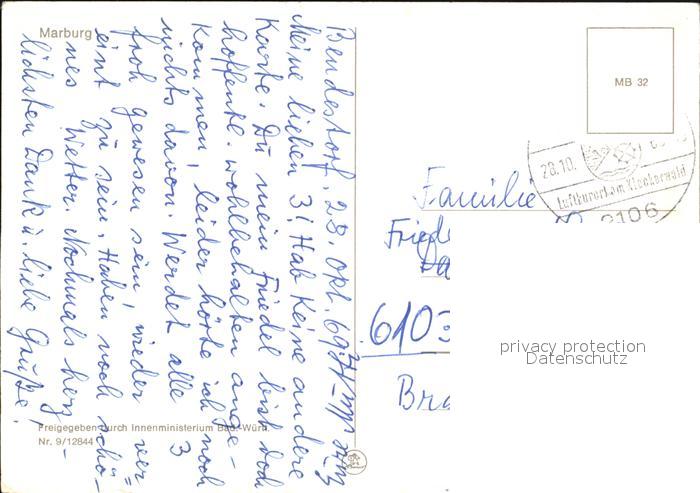 Marburg
MB 32
Bendestorf, 28. Okt. 69.
Meine lieben 3! Hab keine andere
Karte. Du mein Friedel bist doch
hoffentl. wohlbehalten ange-
kommen, leider hörte ich noch
nichts davon. Werdet alle 3
froh gewesen sein, wieder ver-
eint zu sein. Haben noch schö-
nes Wetter. Nochmals herz-
lichsten Dank u. liebe Grüße!
28.10.
Luftkurort am Kleckerwald
2106
Familie
Fried
6103
Bra
privacy protection
Datenschutz
Freigegeben durch Innenministerium Bad.-Württ.
Nr. 9/12844